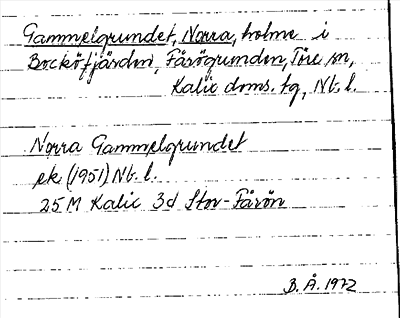 Gammelgrundet, Norra, holme i
Bocköfjärden, Fårögrunden, Töre sn,
Kalix doms. tg, Nb. l.
Norra Gammelgrundet
ek (1951) Nb. l.
25M Kalix 3d Stor-Fårön
B. Å. 1972